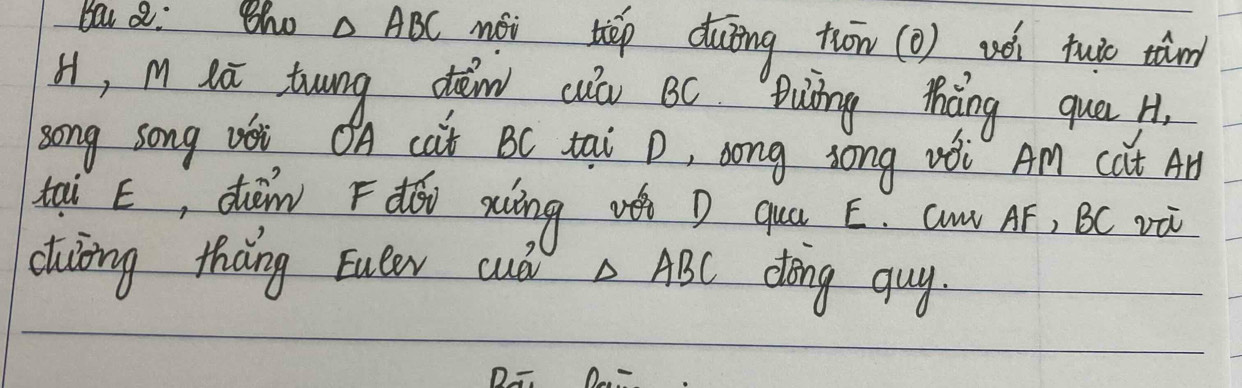 Bài 2: Cho △ ABC nội tiếp đường tròn (O) với trực tâm
H, M là trung điểm của BC. Đường thẳng qua H,
song song với OA cắt BC tại D, song song với AM cắt AH
tại E, điểm F đối xứng với D qua E. CM AF, BC và
đường thẳng Euler của △ ABC đồng quy.
Bài